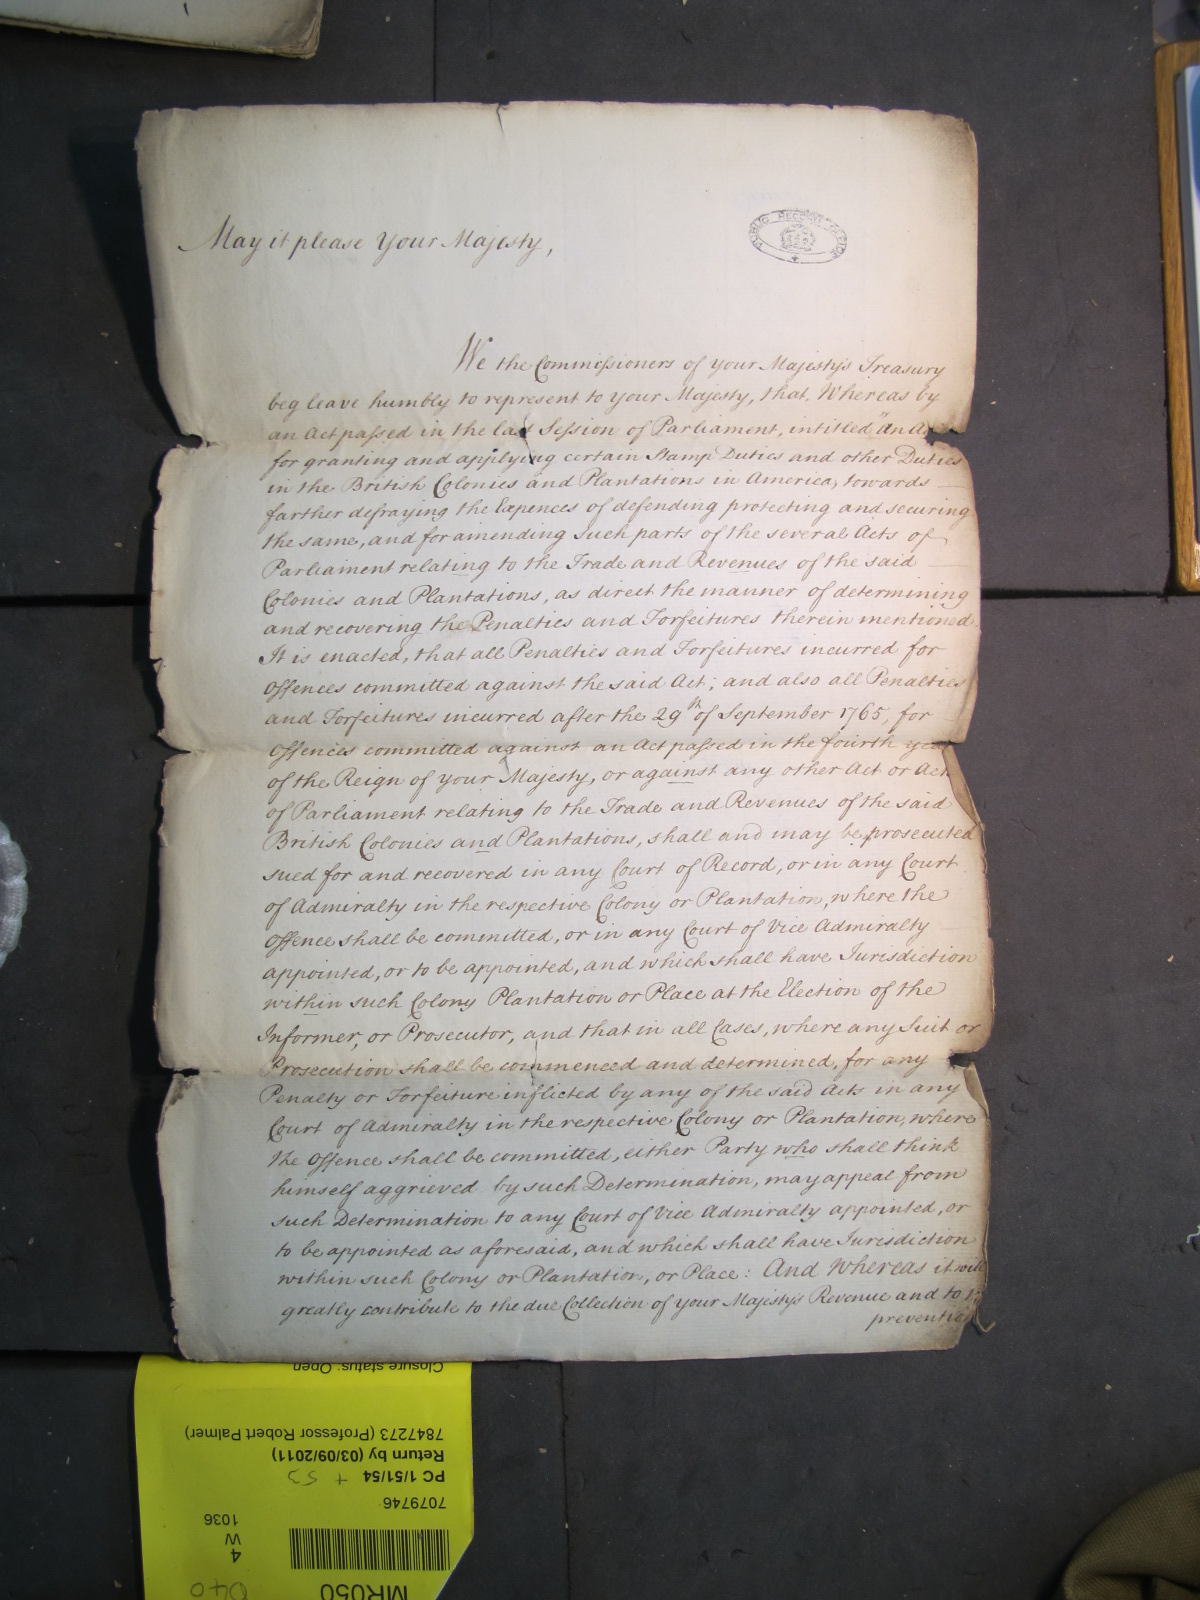 May it please Your Majesty,
PUBLIC RECORD OFFICE
We the Commissioners of your Majesty's Treasury
beg leave humbly to represent to your Majesty, that, Whereas by
an Act passed in the last Session of Parliament, intitled "An A
for granting and applying certain Stamp Duties and other Duties
in the British Colonies and Plantations in America, towards
farther defraying the Expences of defending protecting and securing
the same, and for amending such parts of the several Acts of
Parliament relating to the Trade and Revenues of the said
Colonies and Plantations, as direct the manner of determining
and recovering the Penalties and Forfeitures therein mentioned
It is enacted, that all Penalties and Forfeitures incurred for
Offences committed against the said Act; and also all Penalties
and Forfeitures incurred after the 29th of September 1765, for
Offences committed against an Act passed in the fourth yea
of the Reign of your Majesty, or against any other Act or Act
of Parliament relating to the Trade and Revenues of the said
British Colonies and Plantations, shall and may be prosecuted
sued for and recovered in any Court of Record, or in any Court
of Admiralty in the respective Colony or Plantation, where the
Offence shall be committed, or in any Court of Vice Admiralty
appointed, or to be appointed, and which shall have Jurisdiction
within such Colony Plantation or Place at the Election of the
Informer, or Prosecutor, and that in all Cases, where any Suit or
Prosecution shall be commenced and determined, for any
Penalty or Forfeiture inflicted by any of the said Acts in any
Court of Admiralty in the respective Colony or Plantation, where
the Offence shall be committed, either Party who shall think
himself aggrieved by such Determination, may appeal from
such Determination to any Court of Vice Admiralty appointed, or
to be appointed as aforesaid, and which shall have Jurisdiction
within such Colony or Plantation, or Place: And Whereas it will
greatly contribute to the due Collection of your Majesty's Revenue and to
preventi
Closure status: Open
7847273 (Professor Robert Palmer)
Return by (03/09/2011)
PC 1/51/54 + 53
7079746
1036
W
4
MR050
040